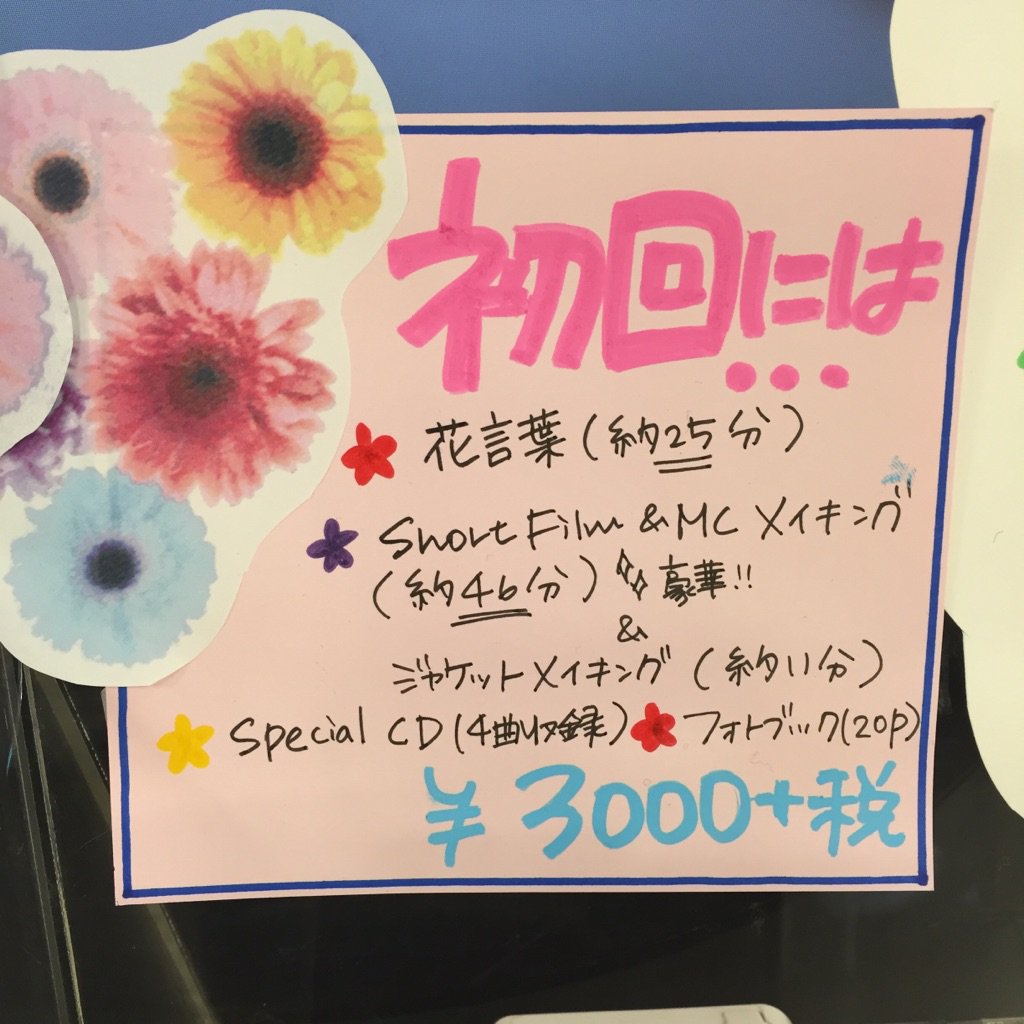 初回には...
花言葉(約25分)
Short Film & MC メイキング
(約46分) 豪華!!
&
ジャケットメイキング (約11分)
Special CD(4曲収録) フォトブック(20p)
¥3000+税